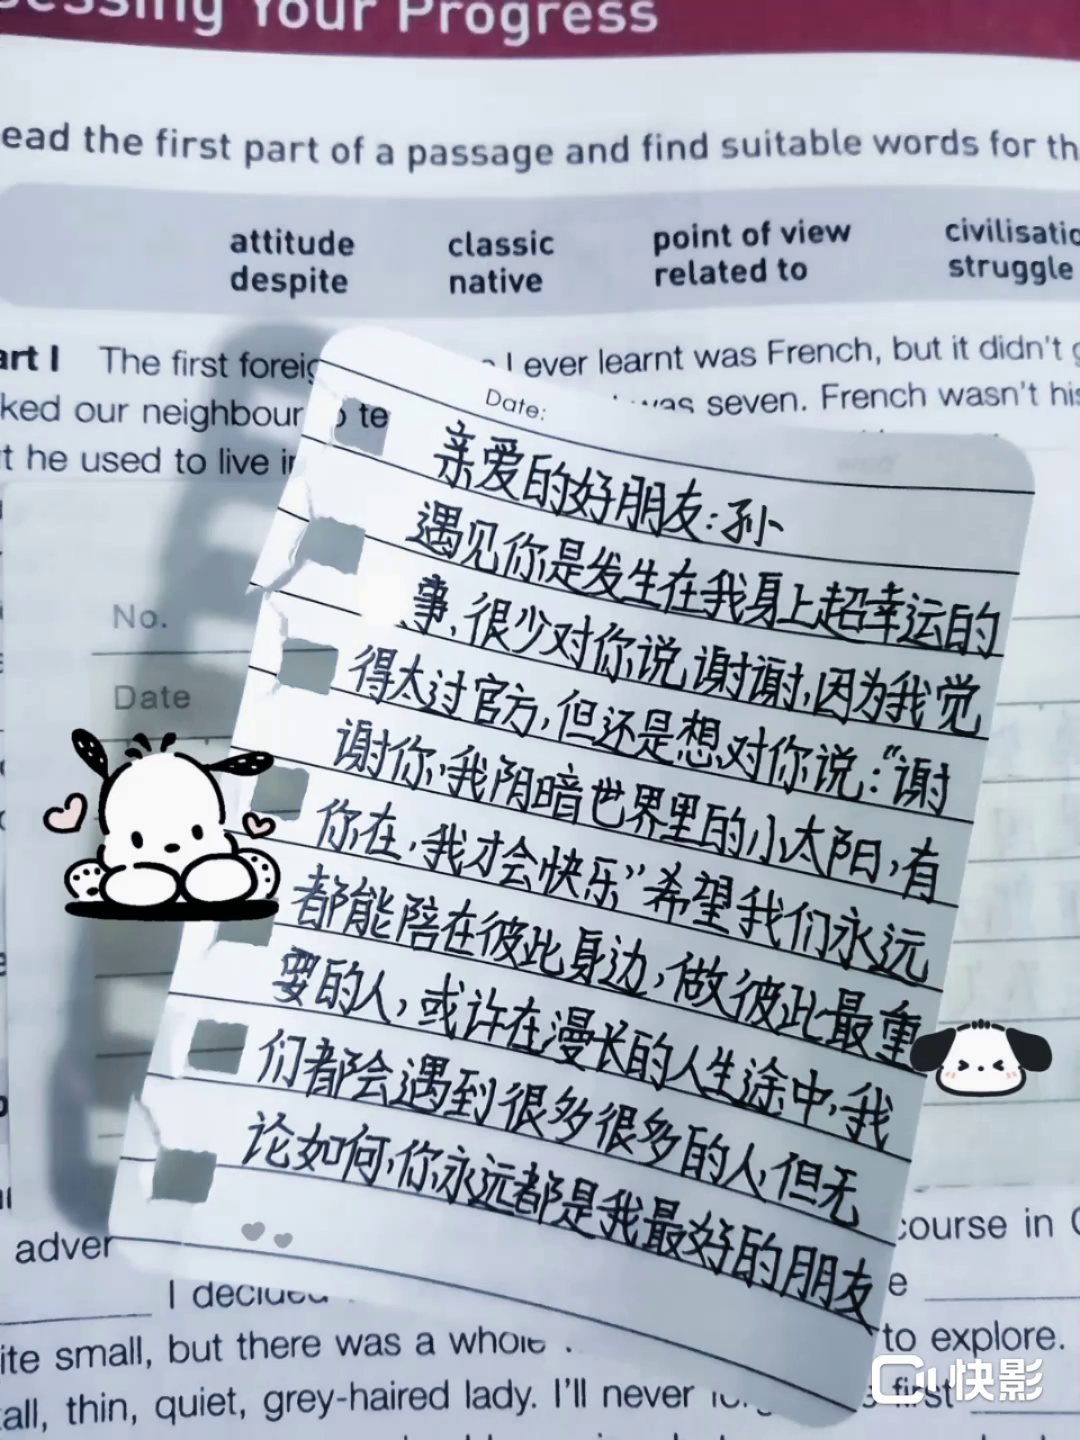 Your Progress
ead the first part of a passage and find suitable words for th
attitude classic point of view
despite native related to struggle
art I The first I ever learnt was French, but it didn't
ked our neighbour te was seven. French wasn't his
t he used to live in
Date:
亲爱的好朋友：孙
遇见你是发生在我身上超幸运的
事，很少对你说谢谢，因为我觉
得太过官方，但还是想对你说：“谢
谢你，我阴暗世界里的小太阳，有
你在，我才会快乐”希望我们永远
都能陪在彼此身边，做彼此最重
要的人，或许在漫长的人生途中，我
们都会遇到很多很多的人，但无
论如何，你永远都是我最好的朋友
No.
Date
course in
adver
I decided e
ite small, but there was a whole to explore.
all, thin, quiet, grey-haired lady. I'll never first
快影